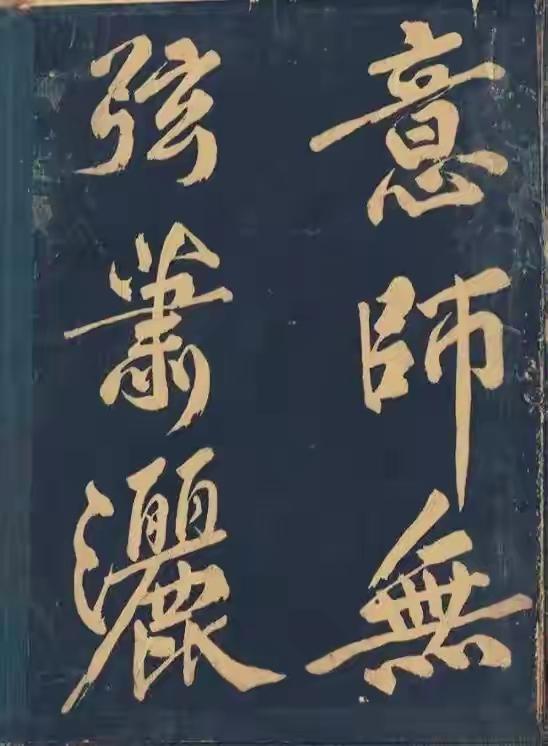 意師無
弦蕭灑